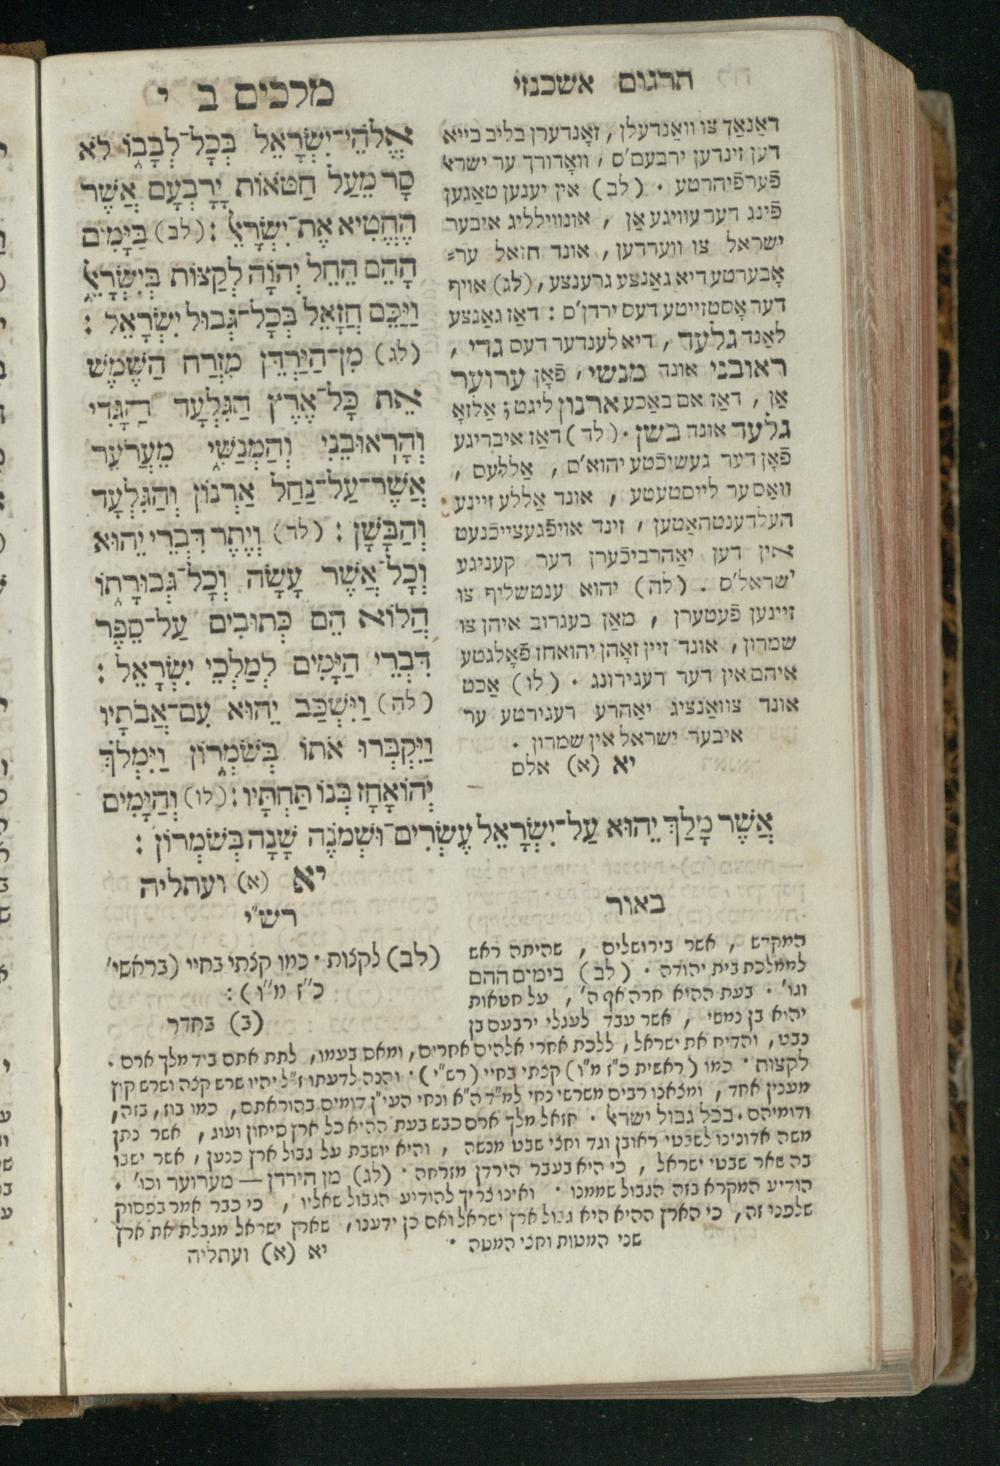 מלכים ב י
אֱלֹהֵי־יִשְׂרָאֵל בְּכָל־לְבָבוֹ לֹא
סָר מֵעַל חַטֹּאוֹת יָרָבְעָם אֲשֶׁר
הֶחֱטִיא אֶת־יִשְׂרָאֵל : (לב) בַּיָּמִים
הָהֵם הֵחֵל יְהוָֹה לְקַצּוֹת בְּיִשְׂרָאֵל
וַיַּכֵּם חֲזָאֵל בְּכָל־גְּבוּל יִשְׂרָאֵל :
(לג) מִן־הַיַּרְדֵּן מִזְרַח הַשֶּׁמֶשׁ
אֵת כָּל־אֶרֶץ הַגִּלְעָד הַגָּדִי
וְהָרְאוּבֵנִי וְהַמְנַשִּׁי מֵעֲרֹעֵר
אֲשֶׁר־עַל־נַחַל אַרְנוֹן וְהַגִּלְעָד
וְהַבָּשָׁן : (לד) וְיֶתֶר דִּבְרֵי יֵהוּא
וְכָל־אֲשֶׁר עָשָׂה וְכָל־גְּבוּרָתוֹ
הֲלוֹא הֵם כְּתוּבִים עַל־סֵפֶר
דִּבְרֵי הַיָּמִים לְמַלְכֵי יִשְׂרָאֵל :
(לה) וַיִּשְׁכַּב יֵהוּא עִם־אֲבֹתָיו
וַיִּקְבְּרוּ אֹתוֹ בְּשֹׁמְרוֹן וַיִּמְלֹךְ
יְהוֹאָחָז בְּנוֹ תַּחְתָּיו : (לו) וְהַיָּמִים
אֲשֶׁר מָלַךְ יֵהוּא עַל־יִשְׂרָאֵל עֶשְׂרִים־וּשְׁמֹנֶה שָׁנָה בְּשֹׁמְרוֹן :
יא (א) ועתליה
תרגום אשכנזי
דאַנאַך צו וואַנדעלן, זאָנדערן בליב בייא
דען זינדען ירבעם'ס , וואָדורך ער ישרא
פֿערפֿיהרטע . (לב) אין יענען טאַגען
פֿינג דער עוויגע אַן , אונוויללינ איבער
ישראל צו ווערדען, אונד חזאל ער=
אָבערטע דיא גאַנצע גרענצע, (לג) אויף
דער אָסטזייטע דעס ירדן'ס : דאַז גאַנצע
לאַנד גלעד , דיא לענדער דעס גדי ,
ראובני אונד מנשי , פֿאָן ערוער
אַן , דאַז אם באַכע ארנון ליגט; אַלזאָ
גלעד אונד בשן . (לד) דאַז איבריגע
פֿאָן דער געשיכֿטע יהוא'ס , אַללעס ,
וואַס ער לייסטעטע , אונד אַללע זיינע
העלדענטהאַטען , זינד אויפֿגעצייכֿנעט
אין דען יאַהרביכֿערן דער קעניגע
ישראל'ס . (לה) יהוא ענטשליף צו
זיינען פֿעטערן , מאַן בעגרוב איהן צו
שמרון, אונד זיין זאָהן יהואחז פֿאָלגטע
איהם אין דער רעגירונג . (לו) אַכט
אונד צוואַנציג יאַהרע רעגירטע ער
איבער ישראל אין שמרון .
יא (א) אלס
רש״י
(לב) לקצות . כמו קצתי בחיי (בראשי'
כ״ז מ״ו) :
(ב) בחדר
באור
המקדש , אשר בירושלים , שהיתה ראש
לממלכת בית יהודה . (לב) בימים ההם
וגו' . בעת ההיא חרה אף ה' , על חטאות
יהוא בן נמשי , אשר עבד לעגלי ירבעם בן
נבט, והדיח את ישראל, ללכת אחרי אלהים אחרים, ומאס בעמו, לתת אתם ביד מלך ארם .
לקצות . כמו (ראשית כ״ז מ״ו) קצתי בחיי (רש״י) . והנה לדעתו ז״ל יהיו שרש קצה ושרש קוץ
מענין אחד, ומצאנו רבים משרשי נחי למ״ד ה״א ונחי העי״ן דומים בהוראתם, כמו בוז, בזה,
ודומיהם. בכל גבול ישרא' . חזאל מלך ארם כבש בעת ההיא כל ארץ סיחון ועוג, אשר נתן
משה אדונינו לשבטי ראובן וגד וחצי שבט מנשה , והיא יושבת על גבול ארץ כנען, אשר ישבו
בה שאר שבטי ישראל , כי היא בעבר הירדן מזרחה . (לג) מן הירדן — מערוער וכו' .
הודיע המקרא בזה הגבול שממנו . ואינו צריך להודיע הגבול שאליו , כי כבר אמר בפסוק
שלפני זה, כי הארץ ההיא היא גבול ארץ ישראל ואם כן ידענו, שארץ ישראל מגבלת את ארץ
שני המטות וחצי המטה .
יא (א) ועתליה